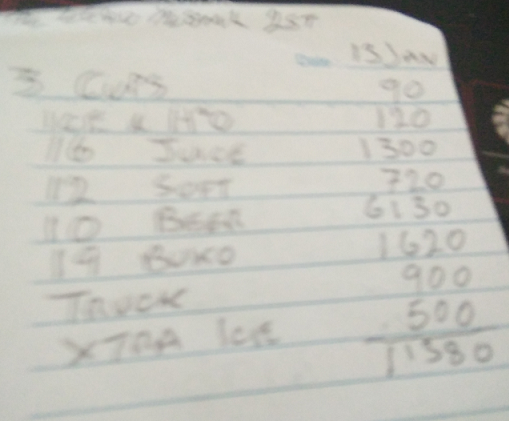 15 JAN
3 CUPS 90
ICE & H2O 120
116 JUICE 1300
112 SOFT 720
110 BEER 6130
119 BUKO 1620
TRUCK 900
XTRA ICE 500
11380